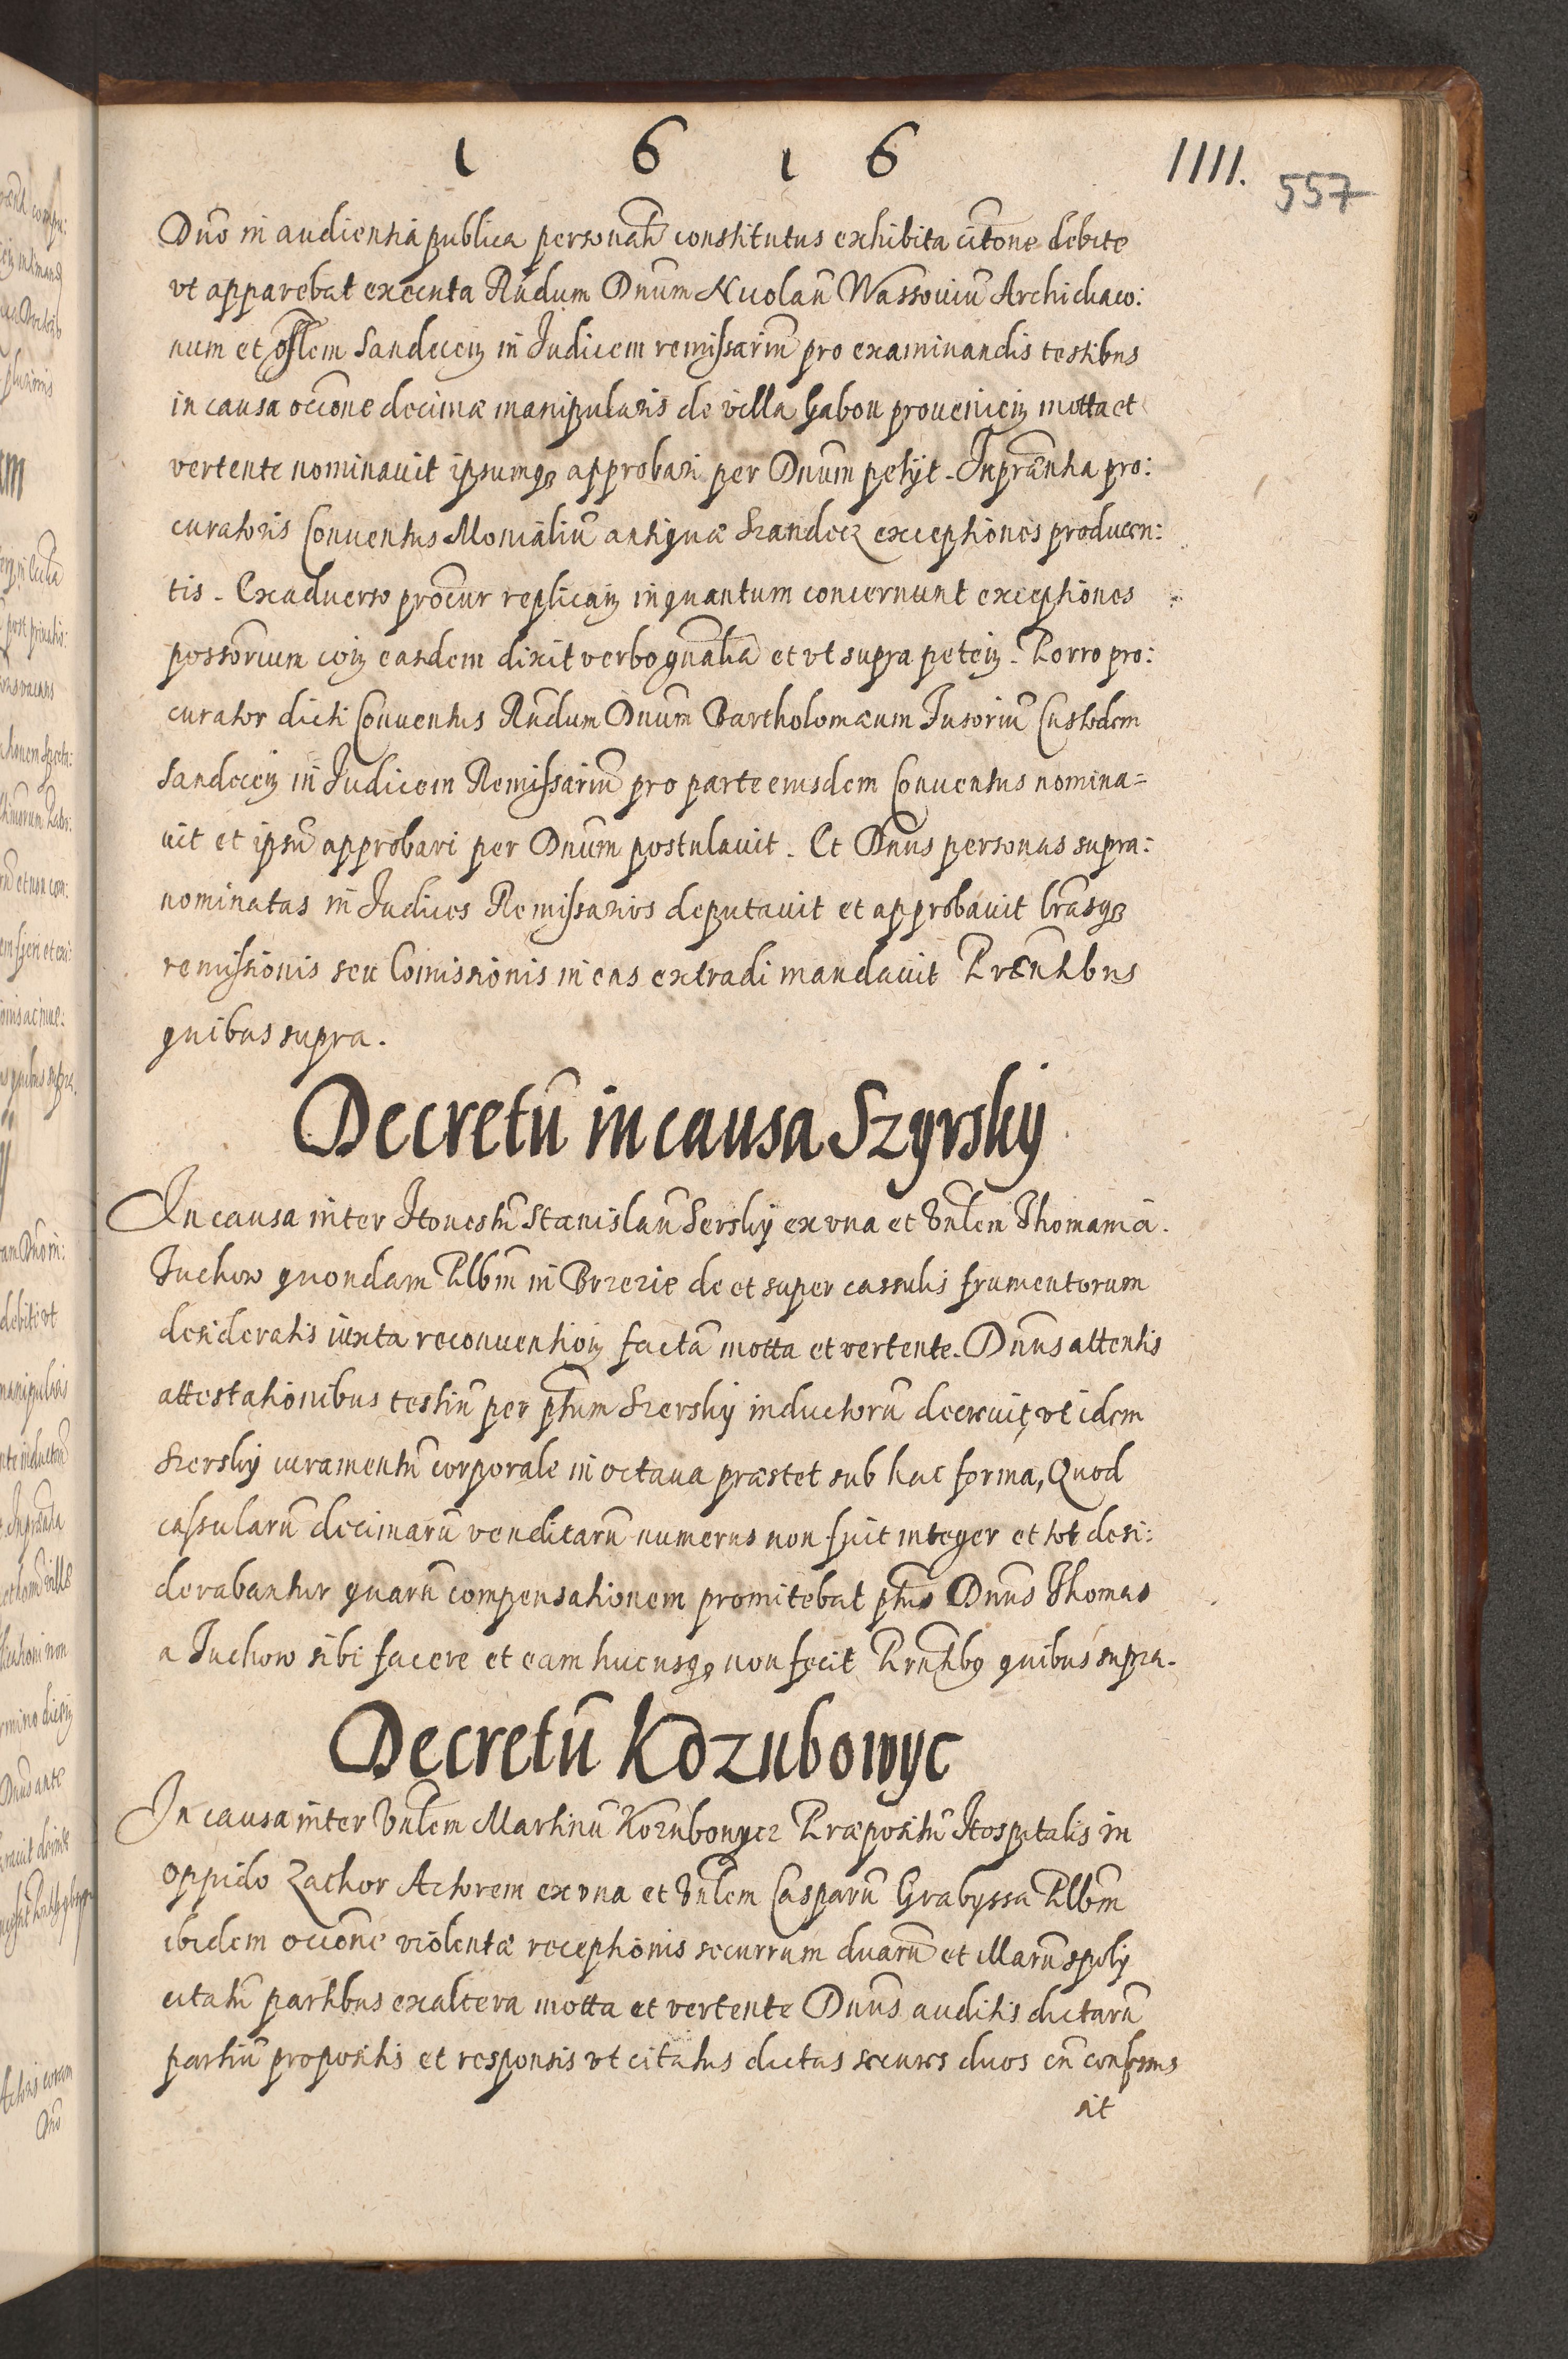 1 6 1 6 1111. 557
Dño in audientia publica personalr̃ constitutus exhibita citõne debite
vt apparebat executa Rñdum Dnum Nicolaũ Wassouiũ Archidiaco:
num et Offlem Sandeceñ in Judicem remissariũ pro examinandis testibus
in causa occõne decimæ manipularis de villa Gabon prouenieñ motta et
vertente nominauit ipsumq3 approbari per Dnum petijt. In præntia pro:
curatoris Conuentus Monialiũ antiquæ Szandecz exceptiones producen:
tis. Ex aduerso procur replicañ in quantum concernunt exceptiones
possorium coñ easdem dixit verbo gñalia et vt supra peteñ. Porro pro:
curator dicti Conuentus Rñdum Dnum Bartholomæum Fusoriũ Custodem
Sandeceñ in Judicem Remissariũ pro parte eiusdem Conuentus nomina=
uit et ipsũ approbari per Dnum postulauit. Et Dnus personas supra:
nominatas in Judices Remissarios deputauit et approbauit lr̃asq3
remissionis seu Comissionis in eas extradi mandauit Præntibus
quibus supra.
Decretũ in causa Szyrsky
In causa inter Honestũ Stanislaũ Sersky ex vna et Vnlem Thomam à
Tuchow quondam Plbm̃ in Brzezie de et super cassulis frumentorum
desideratis iuxta reconuentioñ factã motta et vertente. Dnus attentis
attestationibus testiũ per ptum Szersky inductorũ decreuit, vt idem
Szersky iuramentũ corporale in octaua præstet sub hac forma, Quod
cassularũ decimarũ venditarũ numerus non fuit integer et tot desi:
derabantur quarũ compensationem promitebat ptus Dnus Thomas
a Tuchow sibi facere et eam hucusq3 non fecit Prntib9 quibus supra.
Decretũ Kozubowyc
In causa inter Vnlem Martinũ Kozubowycz Præpositũ Hospitalis in
oppido Zathor Actorem ex vna et Vnlem Casparũ Grabyssa Plbm̃
ibidem occõne violentæ receptionis securrum duarũ et Marũsply
citatũ partibus ex altera motta et vertente Dnus auditis dictarũ
partiũ propositis et responsis vt citatus dictas secures duos cũ confessus
sit